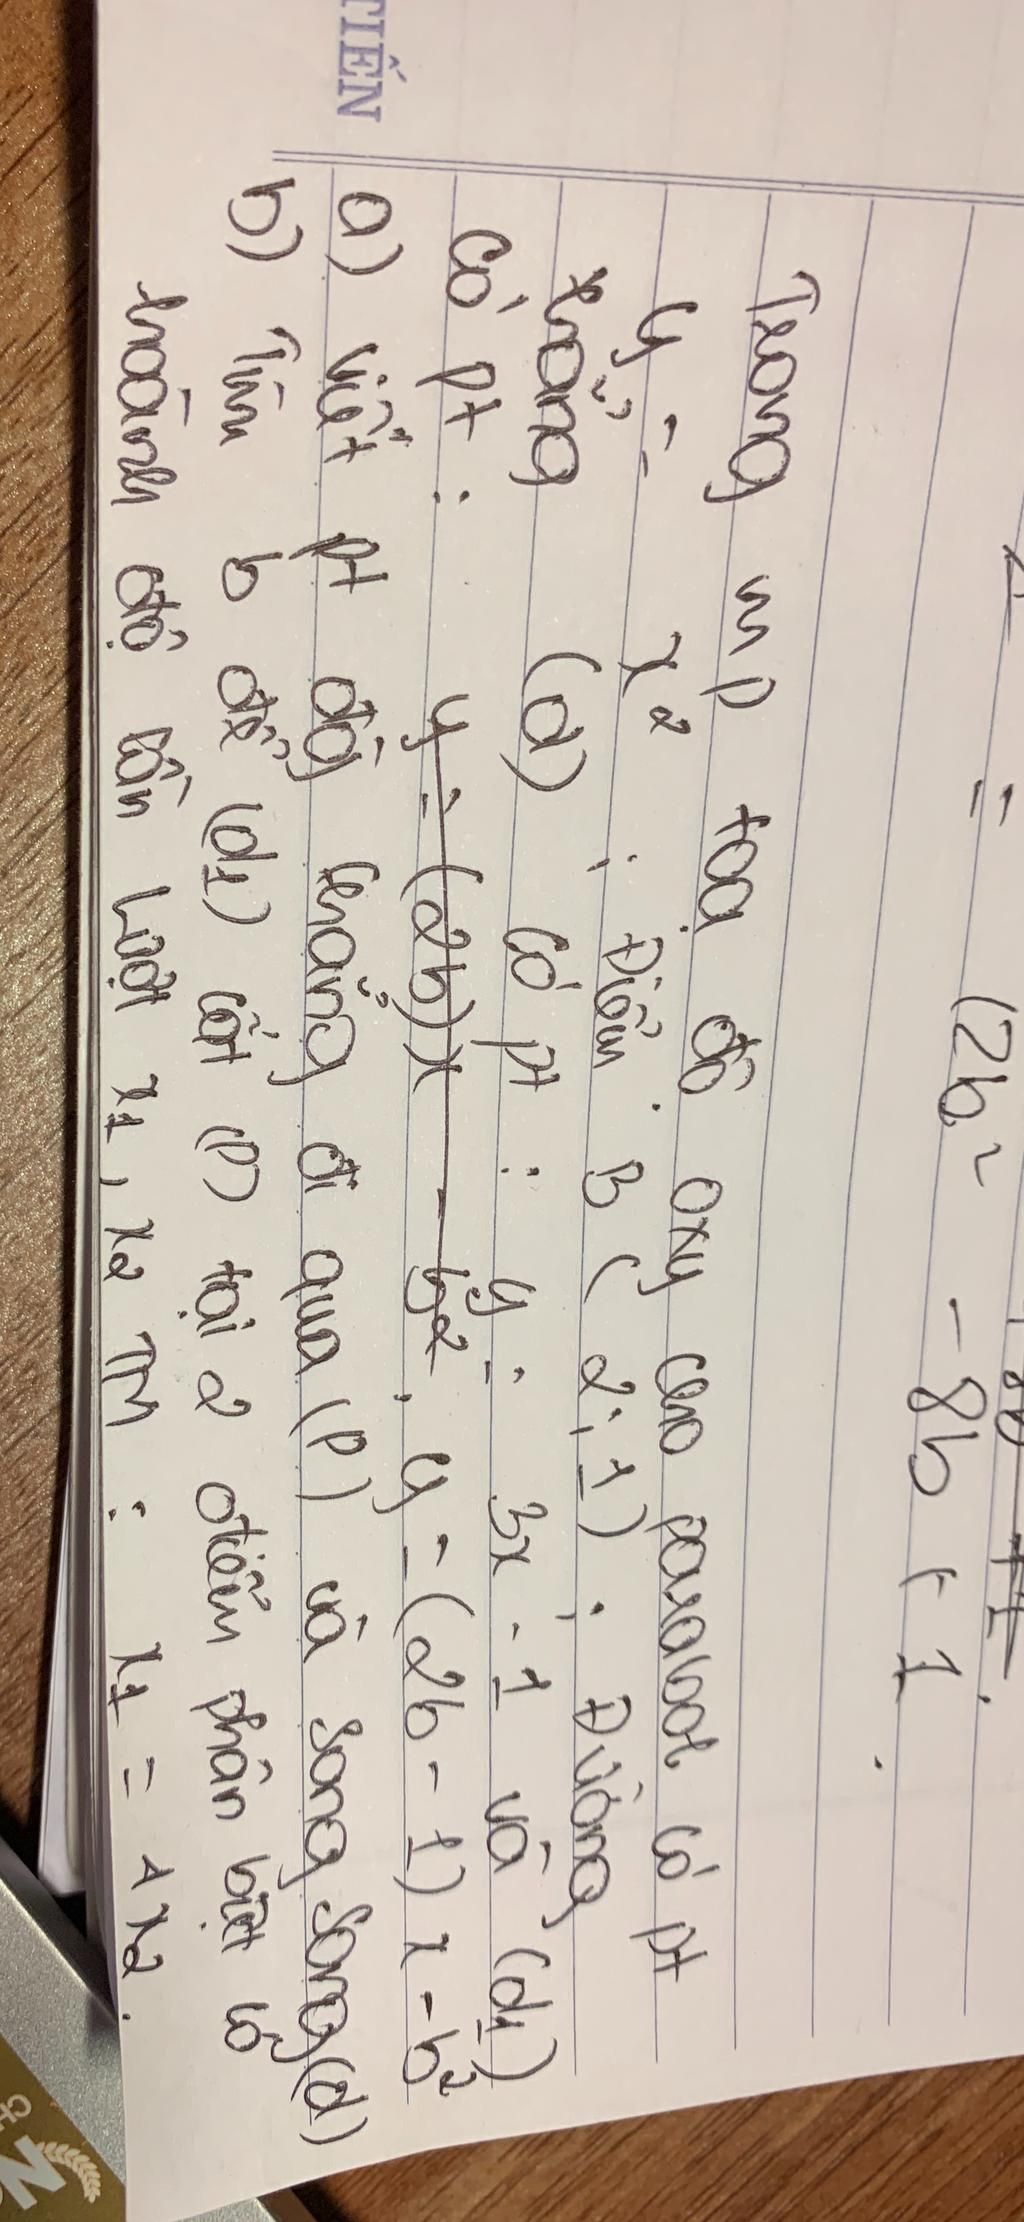 TIẾN
= (2b² - 8b + 1
Trong mp toạ độ oxy cho parabol có pt
y = x² ; Điểm B ( 2 ; 1 ) ; Đường
thẳng (d) có pt : y = 3x - 1 và (d1)
có pt : y = (2b)x - b² , y = (2b - 1) x - b²
a) Viết pt đg thẳng đi qua (P) và song song (d)
b) Tìm b để (d1) cắt (P) tại 2 điểm phân biệt có
hoành độ lần lượt x1 , x2 TM : x1 = 4x2 .
N